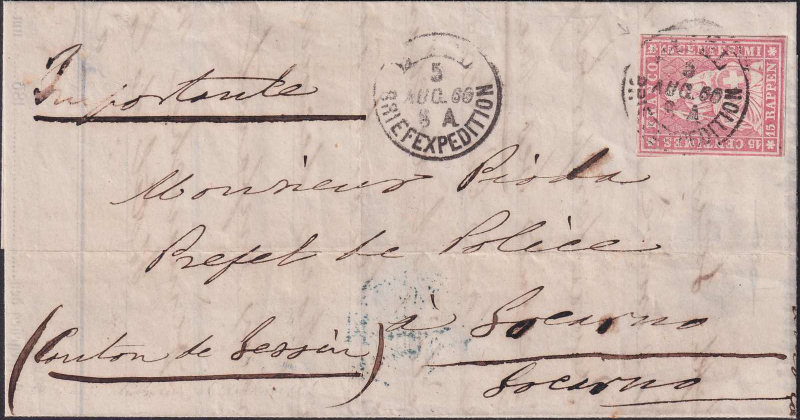 Importante
5
AUG. 66
8 A
BRIEFEXPEDITION
5
AUG. 66
8 A
CENTESIMI
15 RAPPEN
15 CENTIMES
Monsieur Pioda
Prefet de Police
à Locarno
(Canton de Tessin)
Locarno